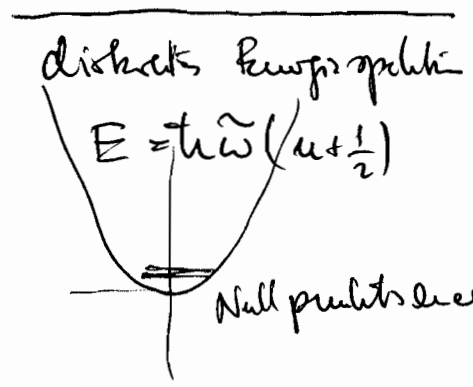 diskretes Energiespektrum
E = ħω̃(n+½)
Nullpunktsene